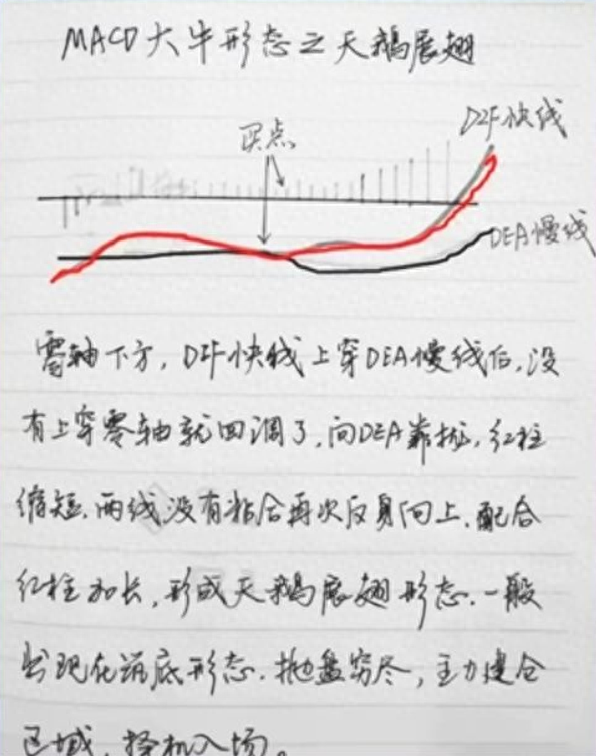 MACD大牛形态之天鹅展翅
买点
DIF快线
DEA慢线
零轴下方，DIF快线上穿DEA慢线后，没
有上穿零轴就回调了，向DEA靠拢，红柱
缩短，两线没有粘合再次反身向上，配合
红柱加长，形成天鹅展翅形态。一般
出现在筑底形态，抛盘穷尽，主力建仓
区域，择机入场。